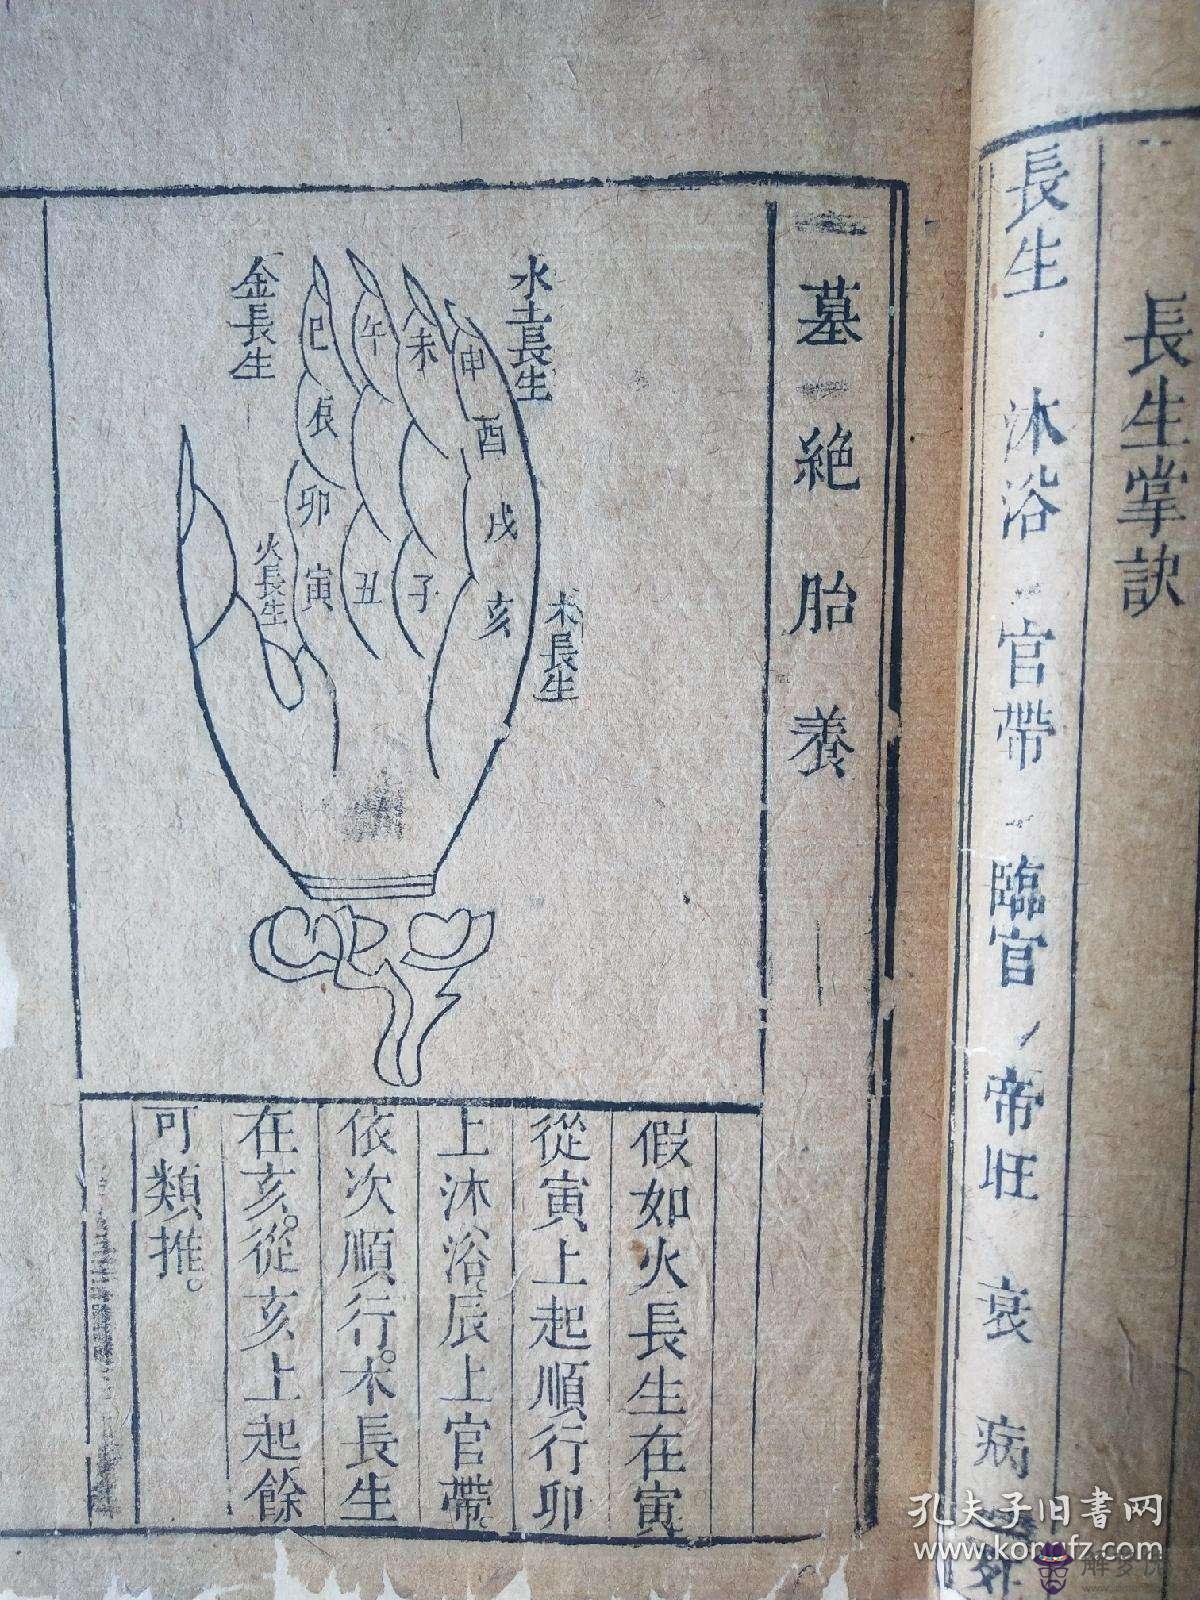 長生掌訣
長生 沐浴 官帶 臨官 帝旺 衰 病
墓 絕 胎 養
水土長生
金長生
火長生
木長生
巳
午
未
申
辰
酉
卯
戌
寅
丑
子
亥
假如火長生在寅
從寅上起順行卯
上沐浴。辰上官帶。
依次順行。木長生
在亥。從亥上起餘
可類推。
孔夫子旧书网
www.kongfz.com